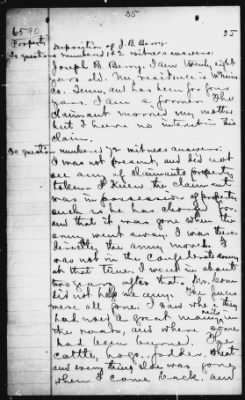 35
35
6580
Property
Deposition of J. B. Berry.
To question numbered 1 & 2 witness answers:
Joseph B. Berry. I am twenty eight
years old. My residence is
Co. Tenn. and has been for four
years. I am a farmer. The
claimant married my mother
but I have no interest in this
claim.
To question numbered 72 witness answers:
I was not present, and did not
see any of claimants property
taken. I knew the claimant
was in possession of property
such as he has charged for,
and that it was gone when the
army went away. I was there
directly the army moved. I
was not in the Confederate army
at that time. I went in about
two years after that. Mr.
did not help me any. The fences
were all gone. I saw where they
had used a great many rails in
the roads, and where some
had been burned. The
cattle, hogs, fodder, wheat
and every thing else was gone
when I came back, and